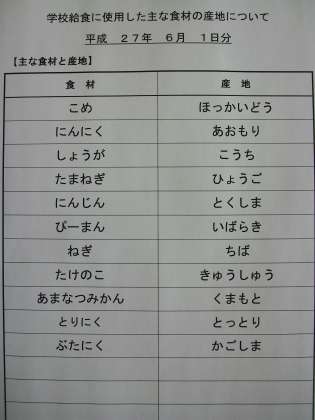 学校給食に使用した主な食材の産地について
平成 27年 6月 1日分
【主な食材と産地】
食材 産地
こめ ほっかいどう
にんにく あおもり
しょうが こうち
たまねぎ ひょうご
にんじん とくしま
ぴーまん いばらき
ねぎ ちば
たけのこ きゅうしゅう
あまなつみかん くまもと
とりにく とっとり
ぶたにく かごしま